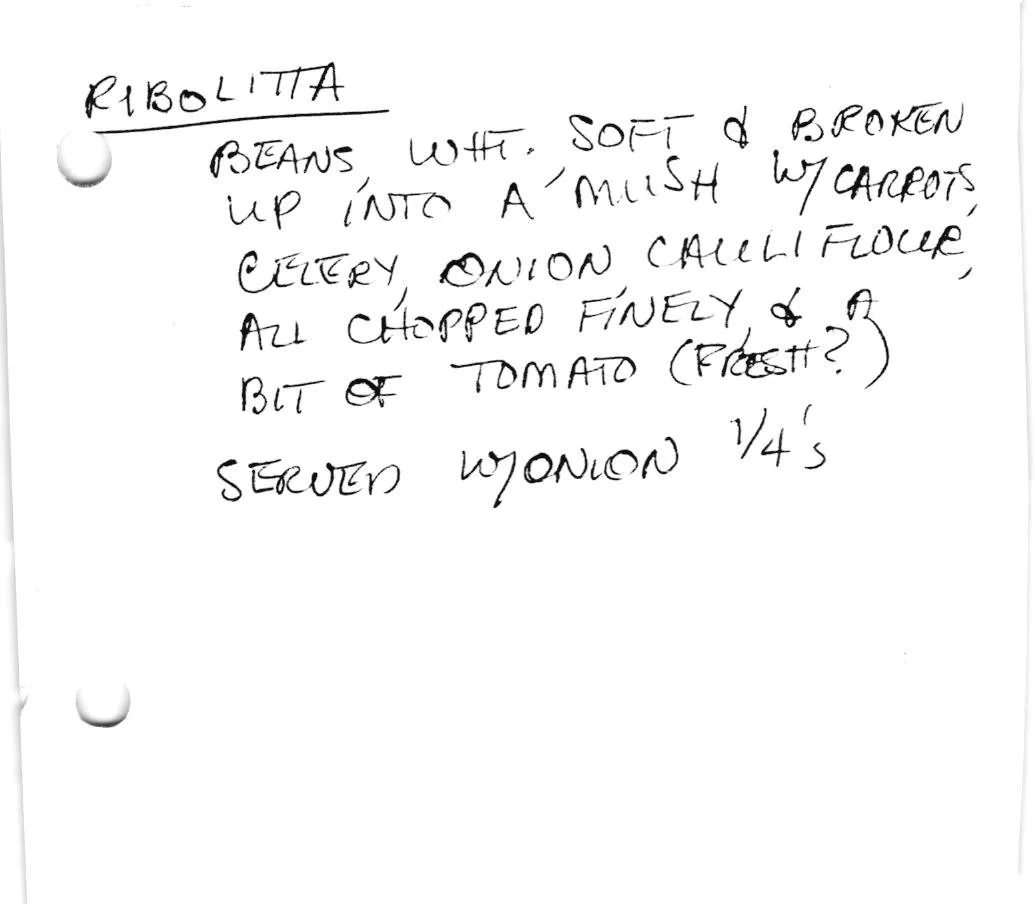 RIBOLITTA
BEANS, WHT. SOFT & BROKEN
UP INTO A MUSH W/ CARROTS,
CELERY, ONION, CAULIFLOUR,
ALL CHOPPED FINELY, & A
BIT OF TOMATO (FRESH?)
SERVED W/ONION 1/4's